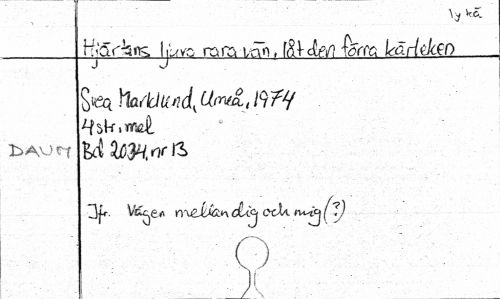 ly kä
Hjärtans ljuva rara vän, låt den förra kärleken
Svea Marklund, Umeå, 1974
4 str, mel
DAUM Bd 2034, nr 13
Jfr. Vägen mellan dig och mig (?)